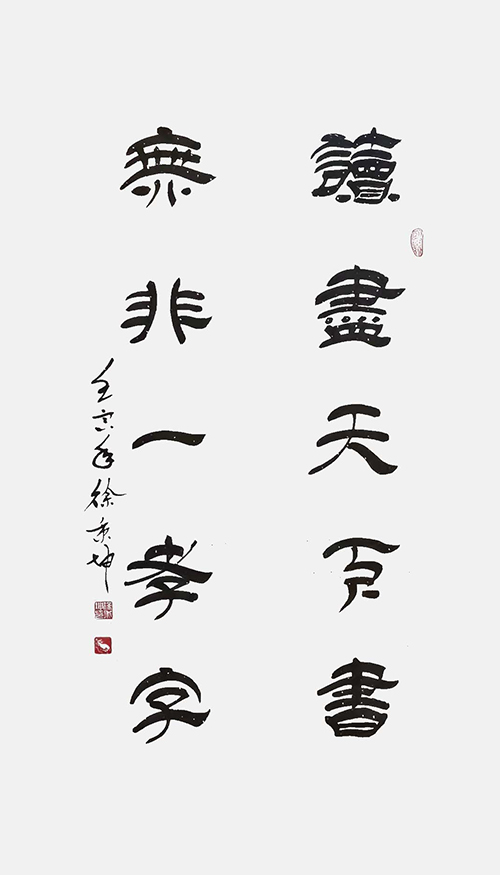 讀盡天下書
無非一孝字
壬寅年徐坤